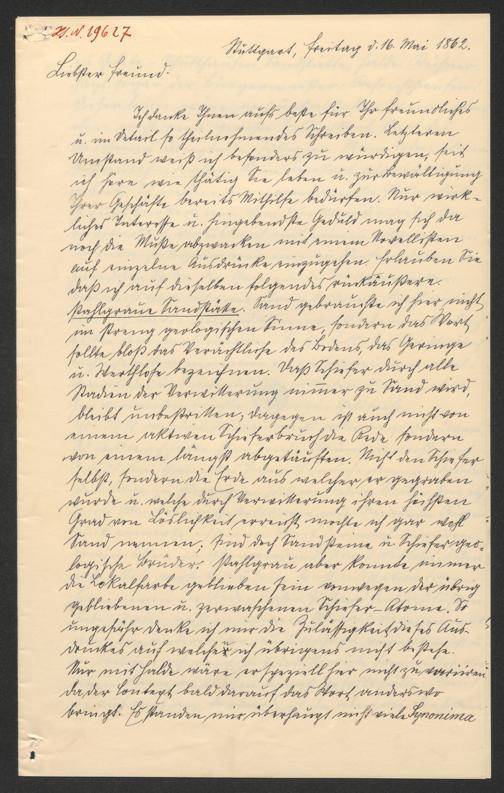 H.N. 19627
Stuttgart, Freitag d. 16. Mai 1862.
Liebster Freund.
Ich danke Ihnen aufs beste für Ihr freundliches
u. im Detail so theilnehmendes Schreiben. Letztern
Umstand weiß ich besonders zu würdigen, seit
ich höre wie thätig Sie leben u. zur Bewältigung
Ihrer Geschäfte bereits Mithilfe bedürfen. Nur wirk-
liches Interesse u. hingebendste Geduld mag sich da
noch die Muße abzwacken mit einem Novellisten
auf einzelne Ausdrücke einzugehen. Erlauben Sie
daß ich auf dieselben folgendes rückäußere.
Stahlgraue Sandstätte. Sand gebrauchte ich hier nicht
im streng geologischen Sinne, sondern das Wort
sollte bloß das Verächtliche des Bodens, das Geringe
u. Werthlose bezeichnen. Daß Schiefer durch alle
Stadien der Verwitterung nimmer zu Sand wird,
bleibt unbestritten; dagegen ist auch nicht von
einem aktiven Schieferbruch die Rede sondern
von einem längst abgetäuften. Nicht den Schiefer
selbst, sondern die Erde aus welcher er gegraben
wurde u. welche durch Verwitterung ihren höchsten
Grad von Löslichkeit erreicht, mochte ich gar wohl
Sand nennen; sind doch Sandsteine u. Schiefer geo-
logische Brüder. Stahlgrau aber konnte immer
die Lokalfarbe geblieben sein vonwegen der übrig
gebliebenen u. zerwaschenen Schiefer-Atome. So
ungefähr denke ich mir die Zulässigkeit dieses Aus-
druckes auf welchen ich übrigens nicht bestehe.
Nur mit Halde wäre er speziell hier nicht zu variiren
da der Context bald darauf das Wort anderswo
bringt. Es standen mir überhaupt nicht viele Synonima